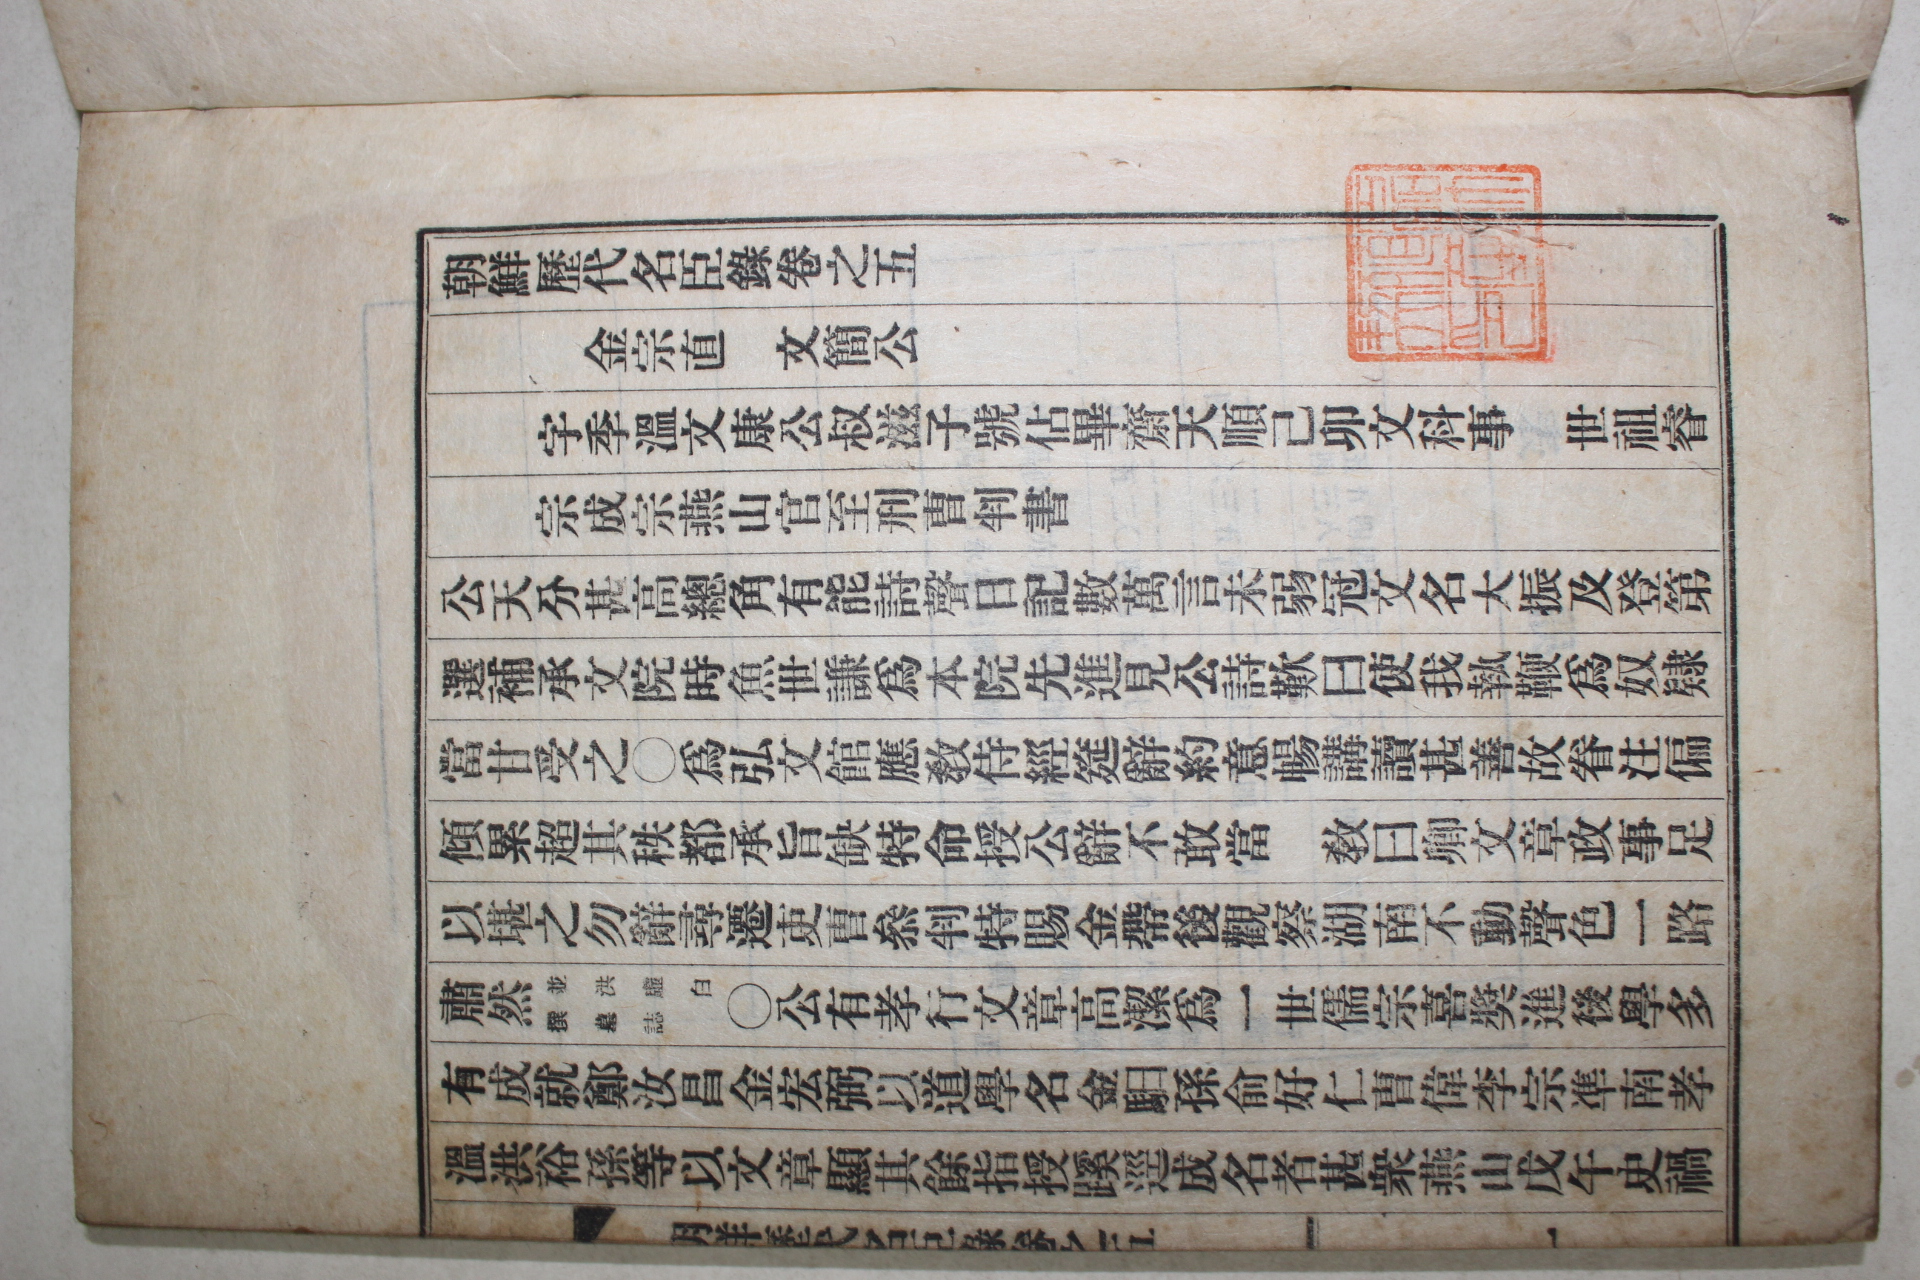 朝鮮歷代名臣錄卷之五
金宗直 文簡公
字季溫文康公叔滋子號佔畢齋天順己卯文科事 世祖睿
宗成宗燕山官至刑曹判書
公天分甚高總角有能詩聲日記數萬言未弱冠文名大振及登第
選補承文院時魚世謙爲本院先進見公詩歎曰使我執鞭爲奴隸
當甘受之〇爲弘文館應敎侍經筵辭約意暢講讀甚善故眷注偏
傾累超其秩都承旨缺特命授公辭不敢當 敎曰卿文章政事足
以堪之勿辭尋遷吏曹叅判特賜金帶後觀察湖南不動聲色一路
肅然並洪虛白撰墓誌〇公有孝行文章高潔爲一世儒宗喜奬進後學多
有成就鄭汝昌金宏弼以道學名金馹孫俞好仁曹偉李宗準南孝
溫洪裕孫等以文章顯其餘指授蹊逕成名者甚衆燕山戊午史禍
朝鮮歷代名臣錄卷之五 一